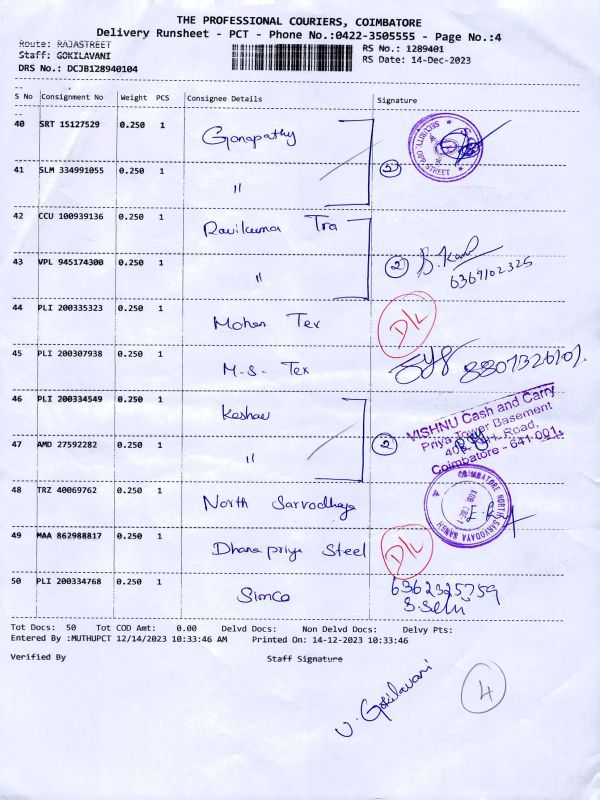 THE PROFESSIONAL COURIERS, COIMBATORE
Delivery Runsheet - PCT - Phone No.:0422-3505555 - Page No.:4
Route: RAJASTREET
RS No.: 1289401
Staff: GOKILAVANI
RS Date: 14-Dec-2023
DRS No.: DCJB128940104
S No Consignment No Weight PCS Consignee Details Signature
40 SRT 15127529 0.250 1 Ganapathy
41 SLM 334991055 0.250 1 " 2
42 CCU 100939136 0.250 1 Ravikumar Tra
43 VPL 945174300 0.250 1 " 2 S.Karl
6369102325
44 PLI 200335323 0.250 1 Mohen Tex D/L
45 PLI 200307938 0.250 1 M.S. Tex
46 PLI 200334549 0.250 1 Keshav
VISHNU Cash and Carry
Priya Tower Basement
Road,
Coimbatore - 641 001.
47 AMD 27592282 0.250 1 " 2
48 TRZ 40069762 0.250 1 North Sarvodhaya
COIMBATORE NORTH SARVODAYA SANGH
49 MAA 862988817 0.250 1 Dhanapriya Steel D/L
50 PLI 200334768 0.250 1 Simco 6362325759
S.Selvi
Tot Docs: 50 Tot COD Amt: 0.00 Delvd Docs: Non Delvd Docs: Delvy Pts:
Entered By :MUTHUPCT 12/14/2023 10:33:46 AM Printed On: 14-12-2023 10:33:46
Verified By Staff Signature
V. Gokilavani 4